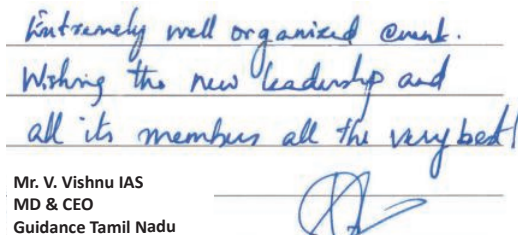 Extremely well organized event.
Wishing the new leadership and
all its members all the very best!
Mr. V. Vishnu IAS
MD & CEO
Guidance Tamil Nadu